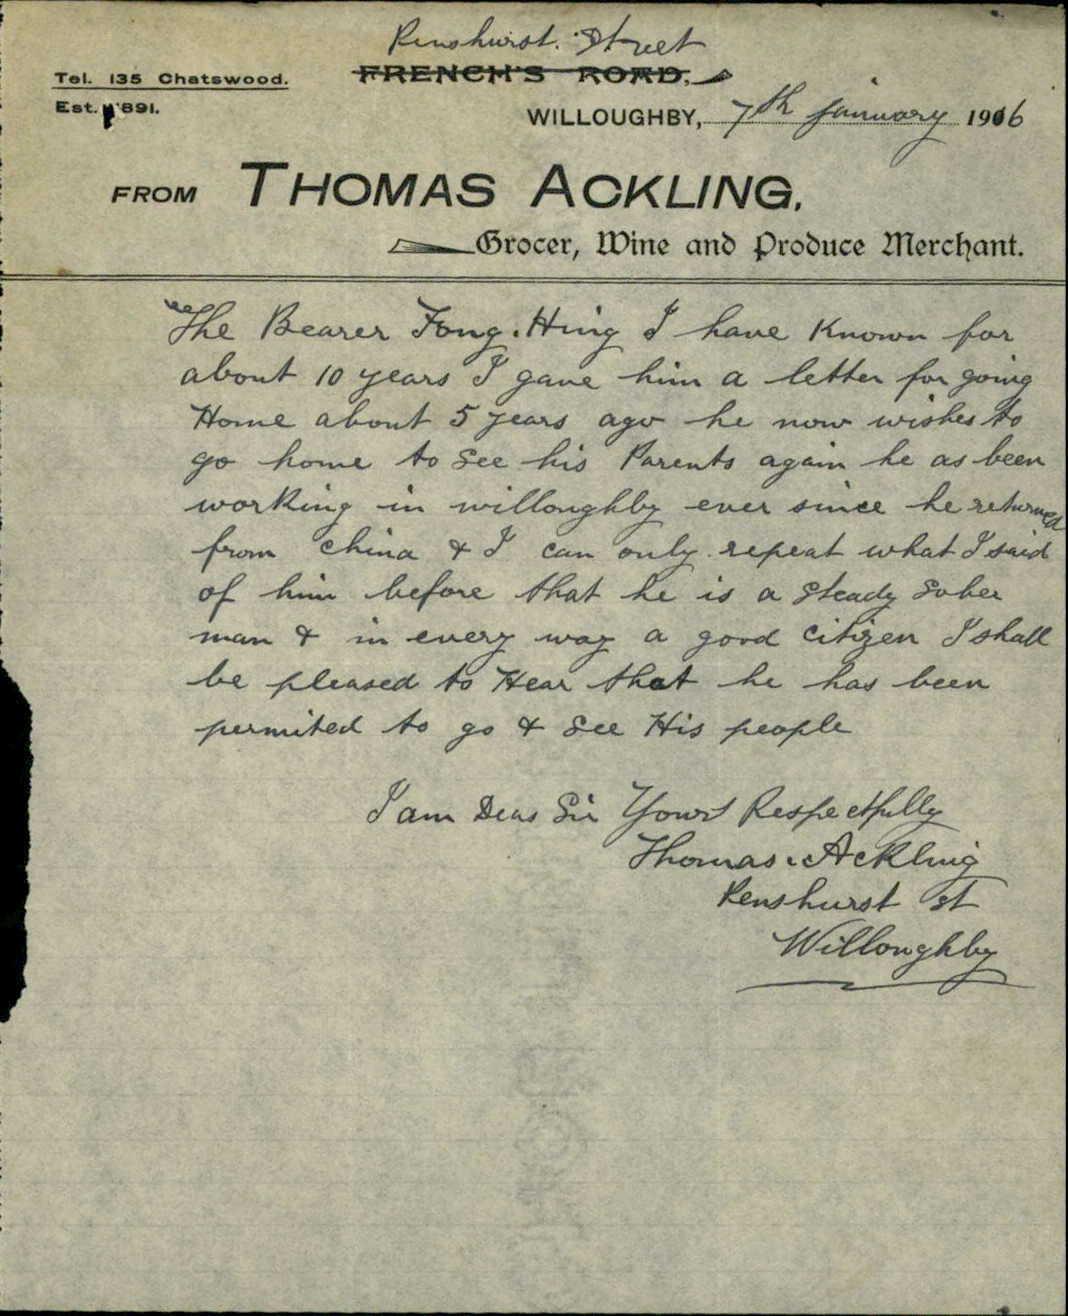 Penshurst. Street
Tel. 135 Chatswood.
FRENCH'S ROAD,
Est. 1891.
WILLOUGHBY, 7th january 1916
FROM THOMAS ACKLING,
Grocer, Wine and Produce Merchant.
The Bearer Fong. Hing I have Known for
about 10 years I gave him a letter for going
Home about 5 years ago he now wishes to
go home to see his Parents again he as been
working in willoughby ever since he returned
from china & I can only repeat what I said
of him before that he is a steady sober
man & in every way a good citizen I shall
be pleased to Hear that he has been
permited to go & see His people
I am Dear Sir Yours Respectfully
Thomas. Ackling
Penshurst St
Willoughby